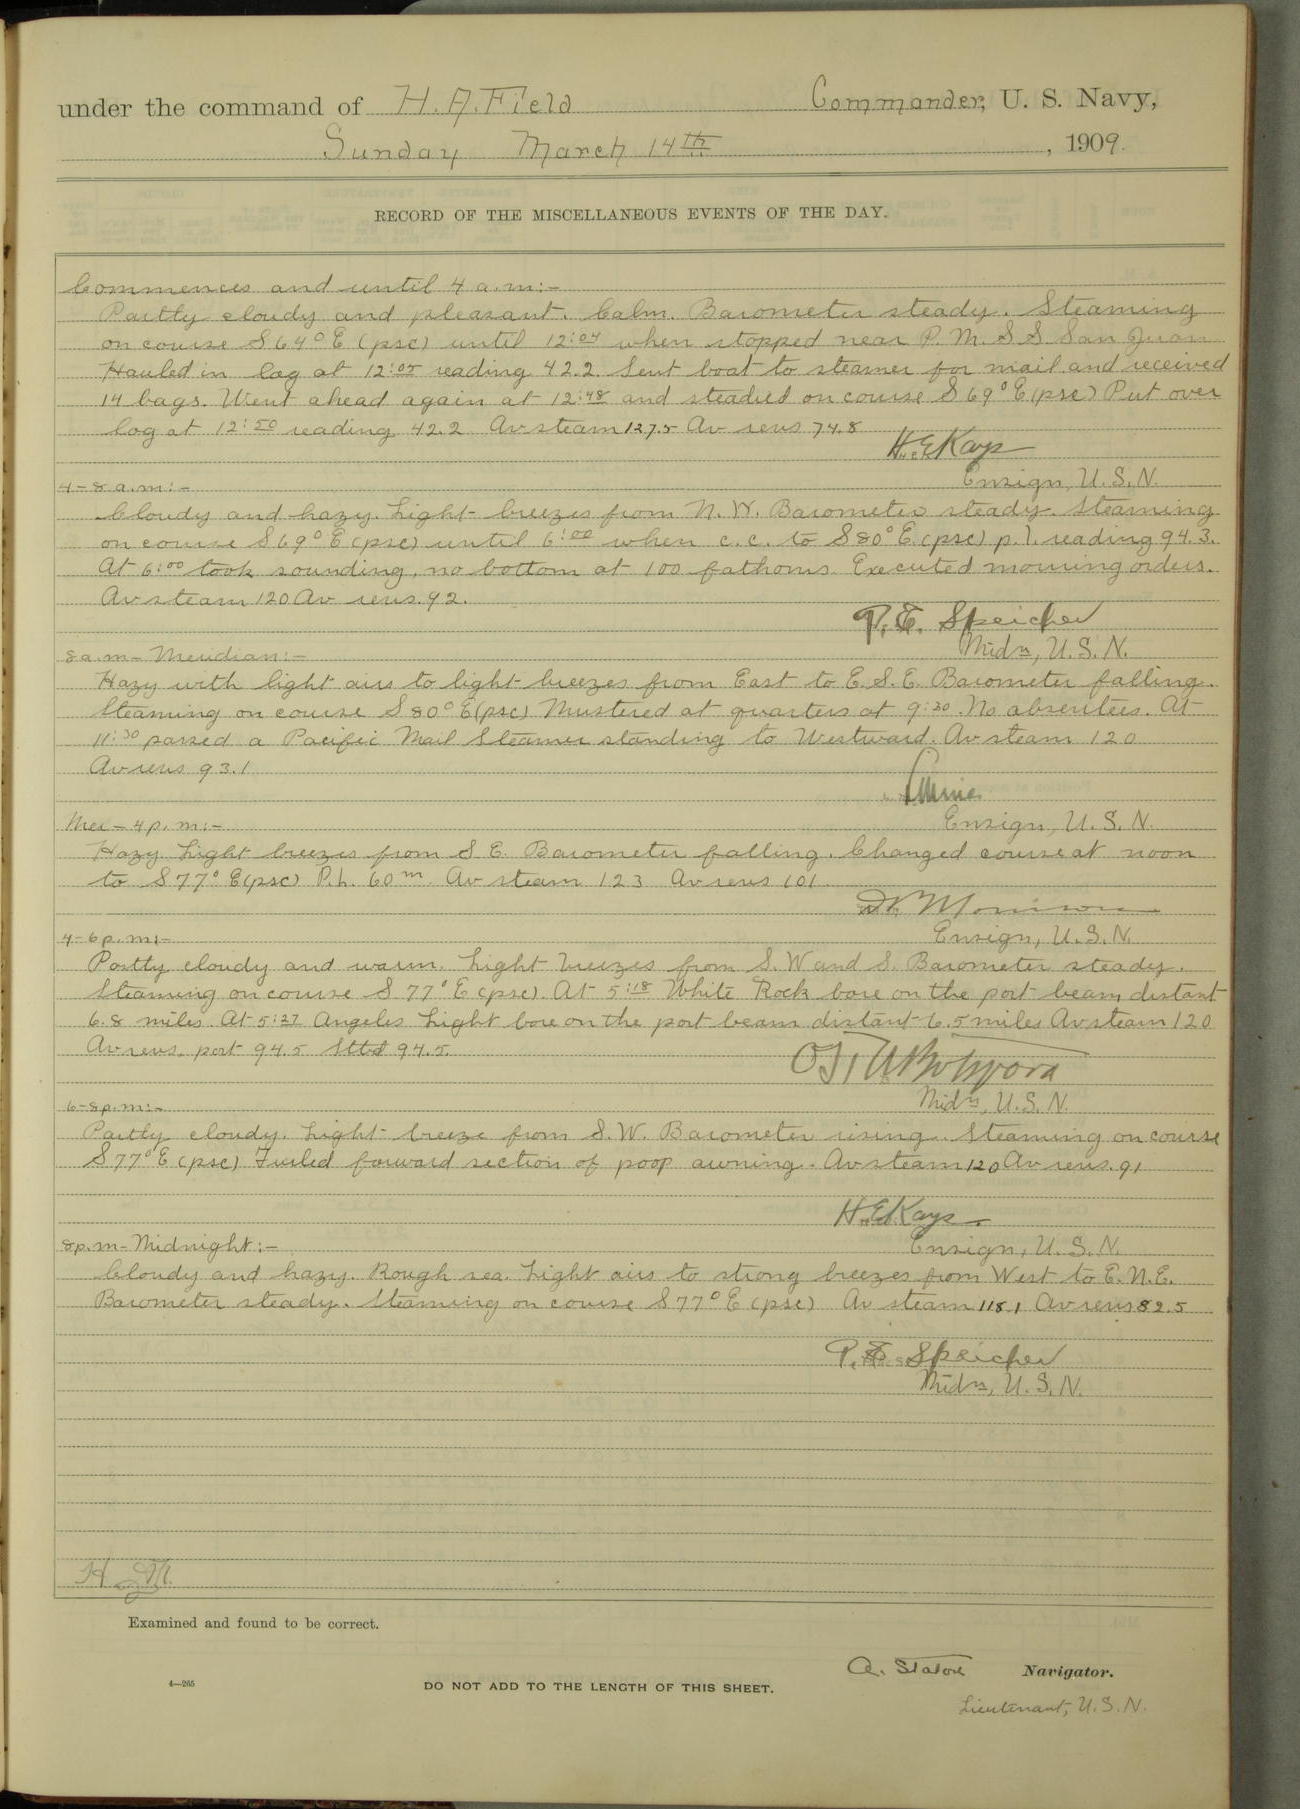 under the command of H. A. Field Commander, U. S. Navy,
Sunday March 14th, 1909.
RECORD OF THE MISCELLANEOUS EVENTS OF THE DAY.
Commences and until 4 a.m:-
Partly cloudy and pleasant. Calm. Barometer steady. Steaming
on course S 64° E (psc) until 12:04 when stopped near P. M. S S San Juan
Hauled in log at 12:05 reading 42.2. Sent boat to steamer for mail and received
14 bags. Went ahead again at 12:48 and steadied on course S 69° E (psc) Put over
log at 12:50 reading 42.2 Av steam 127.5 Av revs 74.8
H. E. Kays
Ensign, U. S. N.
4-8 a.m:-
Cloudy and hazy. Light breezes from N. W. Barometer steady. Steaming
on course S 69° E (psc) until 6:00 when c. c. to S 80° E. (psc) p. l. reading 94.3.
At 6:00 took sounding, no bottom at 100 fathoms. Executed morning orders.
Av steam 120 Av revs. 92.
P. E. Speicher
Midn, U. S. N.
8 a.m- Meridian:-
Hazy with light airs to light breezes from East to E. S. E. Barometer falling.
Steaming on course S 80° E (psc) Mustered at quarters at 9:30. No absentees. At
11:30 passed a Pacific Mail Steamer standing to Westward. Av steam 120
Av revs 93.1
Ensign, U. S. N.
Mer - 4 p. m:-
Hazy Light breezes from S E. Barometer falling. Changed course at noon
to S 77° E (psc) P. L. 60 m. Av steam 123 Av revs 101
Morrison
Ensign, U. S. N.
4-6 p. m:-
Partly cloudy and warm. Light breezes from S. W and S. Barometer steady.
Steaming on course S 77° E (psc). At 5:18 White Rock bore on the port beam distant
6.8 miles. At 5:27 Angeles Light bore on the port beam distant 6.5 miles Av steam 120
Av revs. port 94.5 Stbd 94.5.
Midn, U. S. N.
6-8 p. m:-
Partly cloudy. Light breeze from S. W. Barometer rising. Steaming on course
S 77° E (psc) Furled forward section of poop awning. Av steam 120 Av revs. 91
H. E. Kays
Ensign, U. S. N.
8 p. m- Midnight:-
Cloudy and hazy. Rough sea. Light airs to strong breezes from West to E. N. E.
Barometer steady. Steaming on course S 77° E (psc) Av steam 118.1 Av revs 82.5
P. E. Speicher
Midn, U. S. N.
Examined and found to be correct.
A. Staton Navigator.
4—265
DO NOT ADD TO THE LENGTH OF THIS SHEET.
Lieutenant, U. S. N.